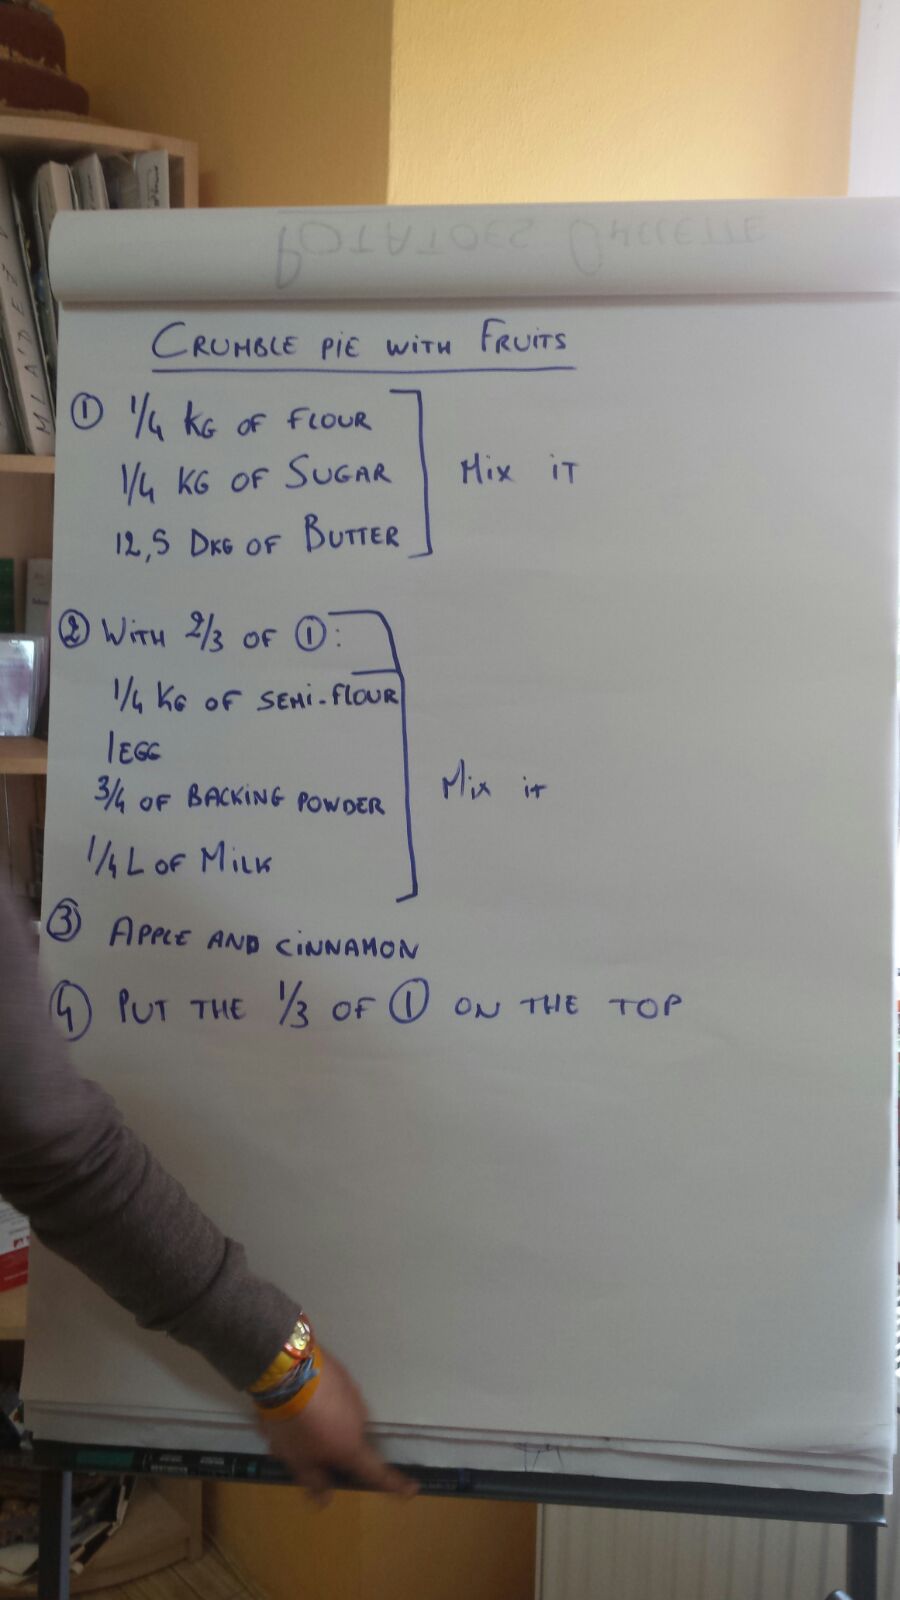 POTATOES OMELETTE
CRUMBLE PIE WITH FRUITS
① 1/4 KG OF FLOUR
1/4 KG OF SUGAR
12,5 DKG OF BUTTER
MIX IT
② WITH 2/3 OF ①:
1/4 KG OF SEMI-FLOUR
1 EGG
3/4 OF BACKING POWDER
1/4 L OF MILK
MIX IT
③ APPLE AND CINNAMON
④ PUT THE 1/3 OF ① ON THE TOP